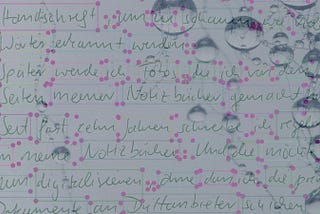 Handschrift, um zu schauen
Wörter erkannt werden.
Später werde ich Fotos, die ich von den
Seiten meiner Notizbücher gemacht
Seit fast zehn Jahren schreibe ich
in meine Notizbücher. Und die möchte
zum digitalisieren, ohne dass ich die
Dokumente an Drittanbieter schicken